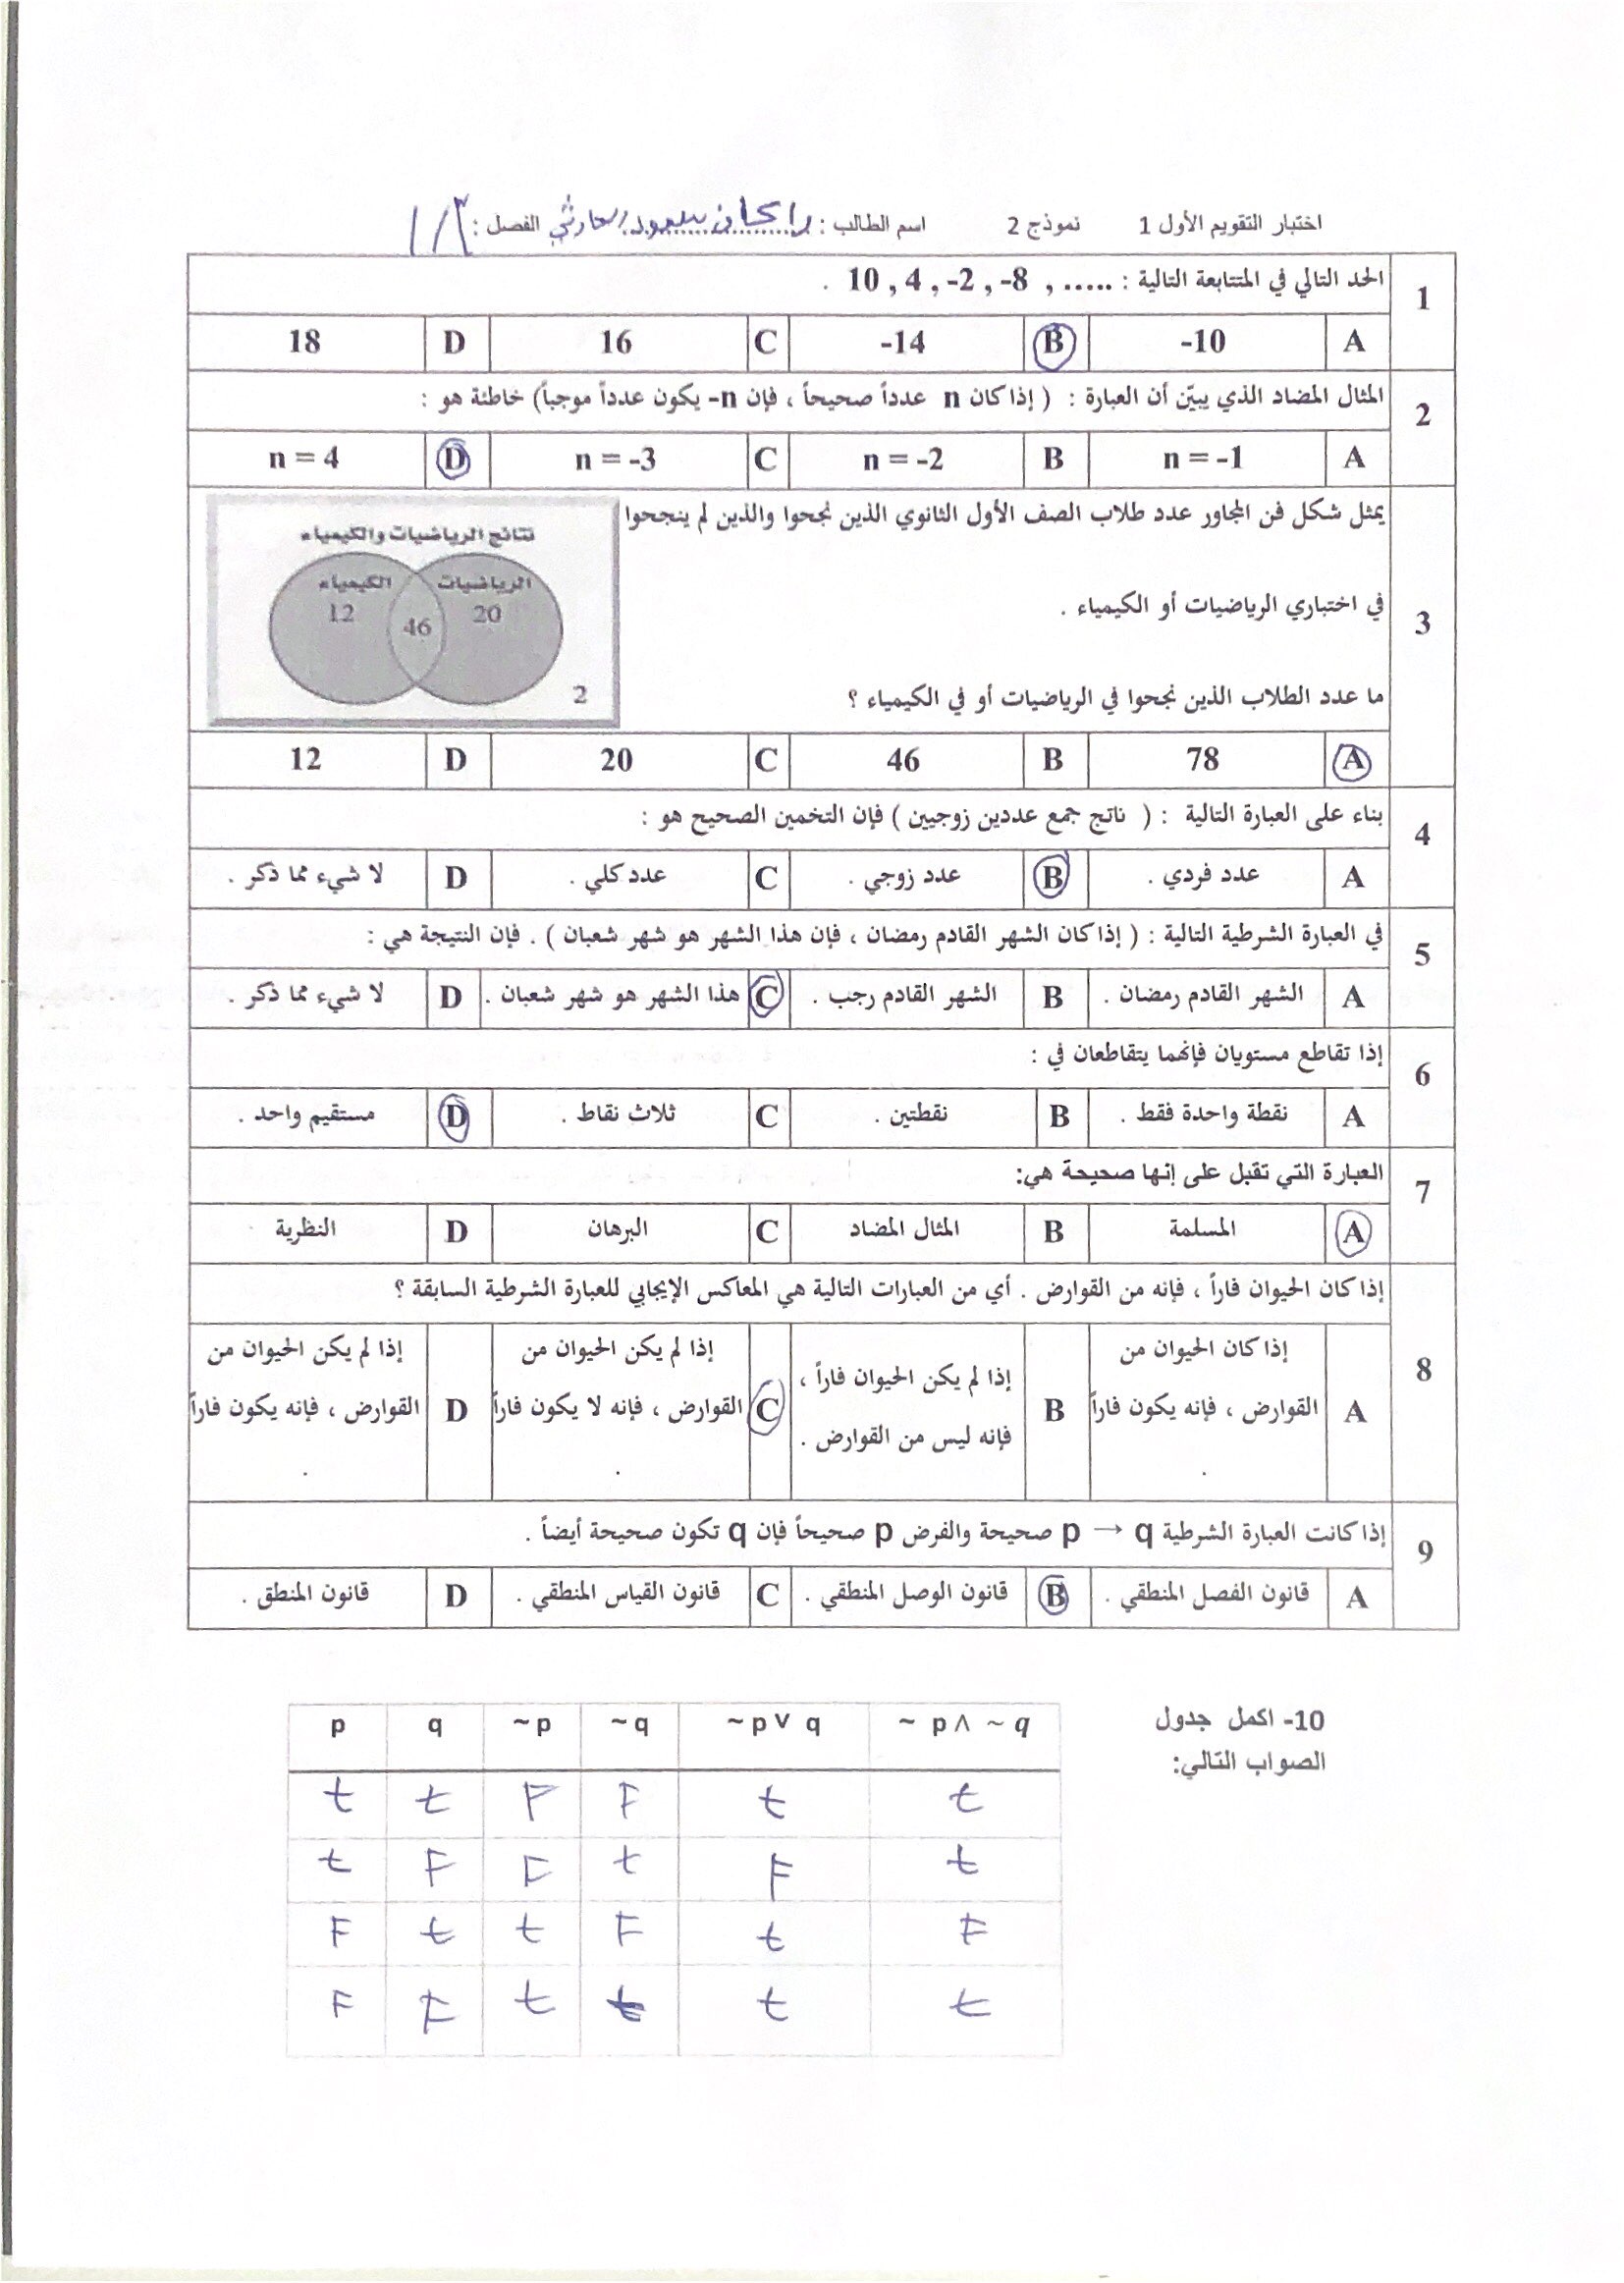 اختبار التقويم الأول 1 نموذج 2 اسم الطالب : ريحان سعود الحارثي الفصل : ١/٣
1 الحد التالي في المتتابعة التالية : 10 , 4 , -2 , -8 , ..... .
A -10 B -14 C 16 D 18
2 المثال المضاد الذي يبيّن أن العبارة : ( إذا كان n عدداً صحيحاً ، فإن n- يكون عدداً موجباً) خاطئة هو :
A n = -1 B n = -2 C n = -3 D n = 4
3 يمثل شكل فن المجاور عدد طلاب الصف الأول الثانوي الذين نجحوا والذين لم ينجحوا
في اختباري الرياضيات أو الكيمياء .
ما عدد الطلاب الذين نجحوا في الرياضيات أو في الكيمياء ؟
نتائج الرياضيات والكيمياء
الرياضيات الكيمياء
20 46 12
2
A 78 B 46 C 20 D 12
4 بناء على العبارة التالية : ( ناتج جمع عددين زوجيين ) فإن التخمين الصحيح هو :
A عدد فردي . B عدد زوجي . C عدد كلي . D لا شيء مما ذكر .
5 في العبارة الشرطية التالية : ( إذا كان الشهر القادم رمضان ، فإن هذا الشهر هو شهر شعبان ) . فإن النتيجة هي :
A الشهر القادم رمضان . B الشهر القادم رجب . C هذا الشهر هو شهر شعبان . D لا شيء مما ذكر .
6 إذا تقاطع مستويان فإنهما يتقاطعان في :
A نقطة واحدة فقط . B نقطتين . C ثلاث نقاط . D مستقيم واحد .
7 العبارة التي تقبل على إنها صحيحة هي:
A المسلمة B المثال المضاد C البرهان D النظرية
8 إذا كان الحيوان فاراً ، فإنه من القوارض . أي من العبارات التالية هي المعاكس الإيجابي للعبارة الشرطية السابقة ؟
A إذا كان الحيوان من القوارض ، فإنه يكون فاراً .
B إذا لم يكن الحيوان فاراً ، فإنه ليس من القوارض .
C إذا لم يكن الحيوان من القوارض ، فإنه لا يكون فاراً .
D إذا لم يكن الحيوان من القوارض ، فإنه يكون فاراً .
9 إذا كانت العبارة الشرطية p → q صحيحة والفرض p صحيحاً فإن q تكون صحيحة أيضاً .
A قانون الفصل المنطقي . B قانون الوصل المنطقي . C قانون القياس المنطقي . D قانون المنطق .
10- اكمل جدول
الصواب التالي:
p q ~p ~q ~p∨ q ~ p∧ ~q
t t F F t t
t F F t F t
F t t F t F
F F t t t t